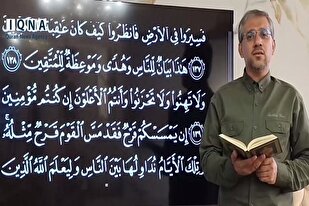 IQNA
فَسِيرُوا فِي الْأَرْضِ فَانْظُرُوا كَيْفَ كَانَ
١٣٧ هَٰذَا بَيَانٌ لِلنَّاسِ وَهُدًى وَمَوْعِظَةٌ لِلْمُتَّقِينَ ١٣٨
وَلَا تَهِنُوا وَلَا تَحْزَنُوا وَأَنْتُمُ الْأَعْلَوْنَ إِنْ كُنْتُمْ مُؤْمِنِينَ
١٣٩ إِنْ يَمْسَسْكُمْ قَرْحٌ فَقَدْ مَسَّ الْقَوْمَ قَرْحٌ مِثْلُهُ ۚ وَ
تِلْكَ الْأَيَّامُ نُدَاوِلُهَا بَيْنَ النَّاسِ وَلِيَعْلَمَ اللَّهُ الَّذِينَ